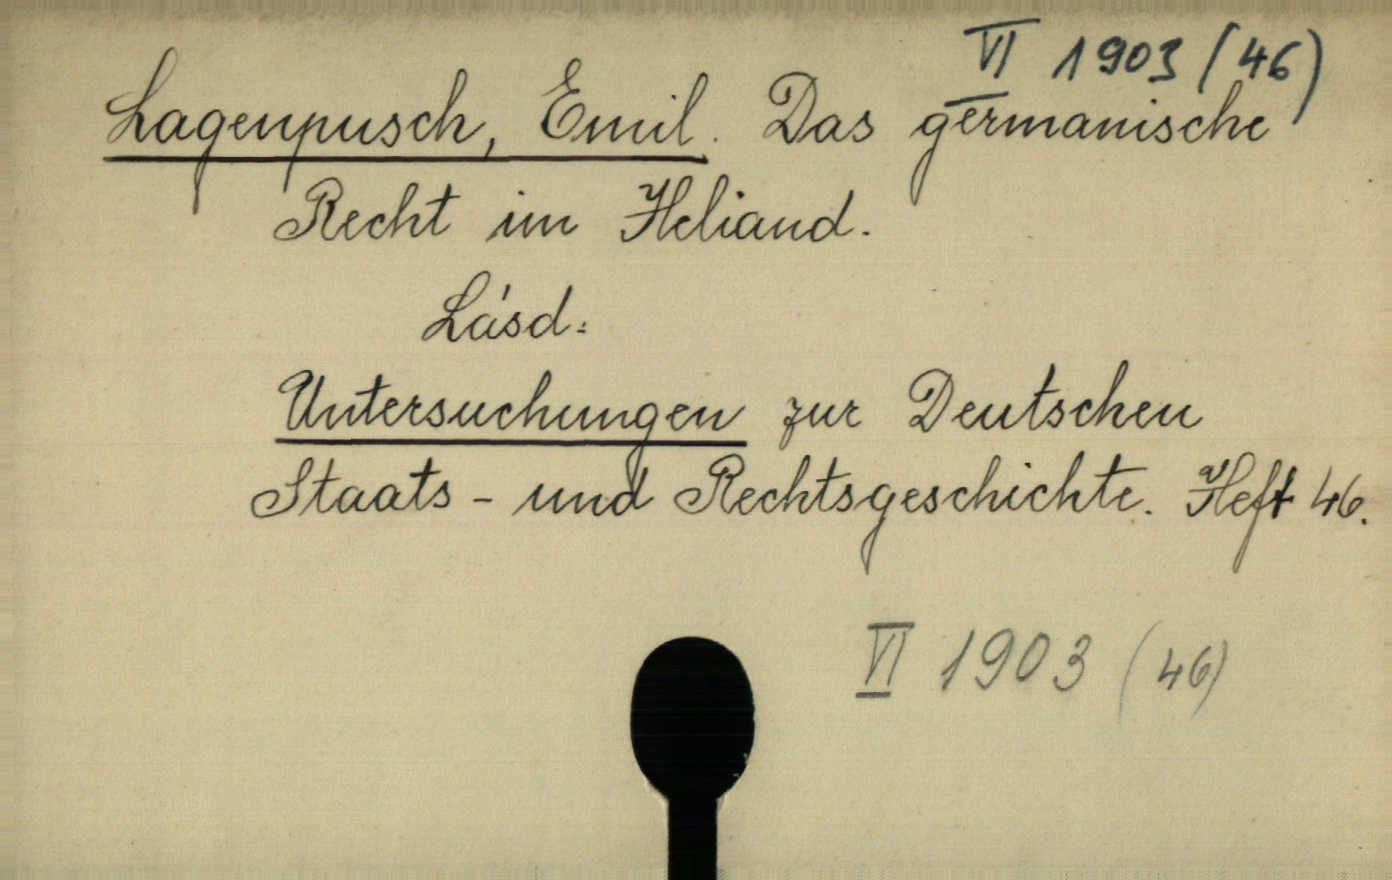 VI 1903 (46)
Lagenpusch, Emil. Das germanische
Recht im Heliand.
Lásd:
Untersuchungen zur Deutschen
Staats - und Rechtsgeschichte. Heft 46.
VI 1903 (46)